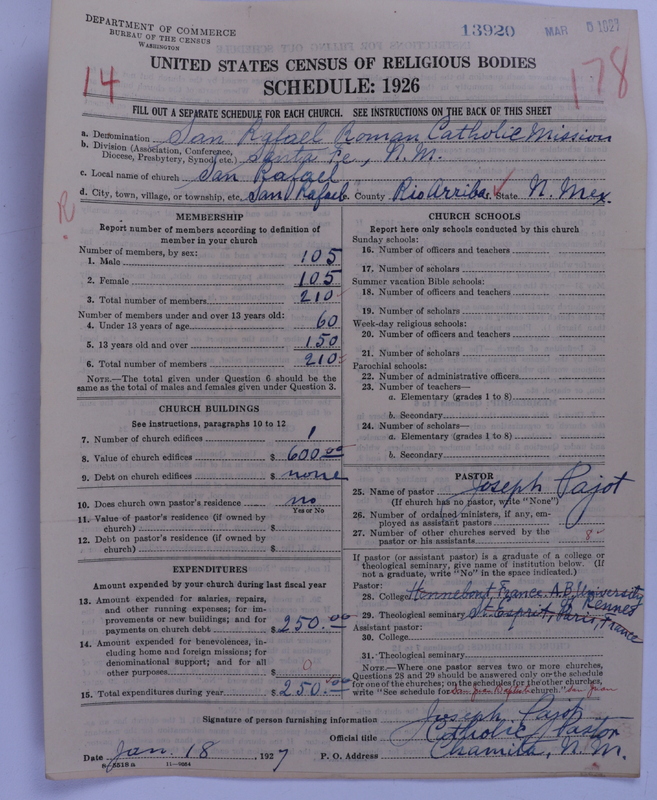 DEPARTMENT OF COMMERCE
BUREAU OF THE CENSUS
WASHINGTON
13920 MAR 5 1927
UNITED STATES CENSUS OF RELIGIOUS BODIES
SCHEDULE: 1926
14
178
FILL OUT A SEPARATE SCHEDULE FOR EACH CHURCH. SEE INSTRUCTIONS ON THE BACK OF THIS SHEET
a. Denomination San Rafael Roman Catholic Mission
b. Division (Association, Conference, Diocese, Presbytery, Synod, etc.) Santa Fe, N.M.
c. Local name of church San Rafael
d. City, town, village, or township, etc. San Rafael County Rio Arriba State N. Mex.
R
MEMBERSHIP
Report number of members according to definition of
member in your church
Number of members, by sex:
1. Male 105
2. Female 105
3. Total number of members 210
Number of members under and over 13 years old:
4. Under 13 years of age 60
5. 13 years old and over 150
6. Total number of members 210
NOTE.—The total given under Question 6 should be the
same as the total of males and females given under Question 3.
CHURCH BUILDINGS
See instructions, paragraphs 10 to 12
7. Number of church edifices 1
8. Value of church edifices $ 600.00
9. Debt on church edifices $ none
10. Does church own pastor's residence no
Yes or No
11. Value of pastor's residence (if owned by
church) $
12. Debt on pastor's residence (if owned by
church) $
EXPENDITURES
Amount expended by your church during last fiscal year
13. Amount expended for salaries, repairs,
and other running expenses; for im-
provements or new buildings; and for
payments on church debt $ 250.00
14. Amount expended for benevolences, in-
cluding home and foreign missions; for
denominational support; and for all
other purposes $ 0
15. Total expenditures during year $ 250.00
CHURCH SCHOOLS
Report here only schools conducted by this church
Sunday schools:
16. Number of officers and teachers
17. Number of scholars
Summer vacation Bible schools:
18. Number of officers and teachers
19. Number of scholars
Week-day religious schools:
20. Number of officers and teachers
21. Number of scholars
Parochial schools:
22. Number of administrative officers
23. Number of teachers—
a. Elementary (grades 1 to 8)
b. Secondary
24. Number of scholars—
a. Elementary (grades 1 to 8)
b. Secondary
PASTOR
25. Name of pastor Joseph Pajot
(If church has no pastor, write "None")
26. Number of ordained ministers, if any, em-
ployed as assistant pastors
27. Number of other churches served by the
pastor or his assistants 8
If pastor (or assistant pastor) is a graduate of a college or
theological seminary, give name of institution below. (If
not a graduate, write "No" in the space indicated.)
Pastor:
28. College Hennebont, France A.B. University
29. Theological seminary St. Esprit, Paris, France
of Rennes
Assistant pastor:
30. College
31. Theological seminary
NOTE.—Where one pastor serves two or more churches,
Questions 28 and 29 should be answered only on the schedule
for one of the churches; on the schedules for the other churches,
write "See schedule for San Juan Baptist church." San Juan
Signature of person furnishing information Joseph Pajot
Official title Catholic Pastor
Date Jan. 18, 1927 P. O. Address Chamita, N.M.
8-5518 a 11-9664